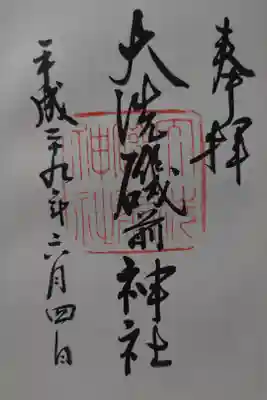 奉拝
大洗磯前神社
平成二十九年六月四日